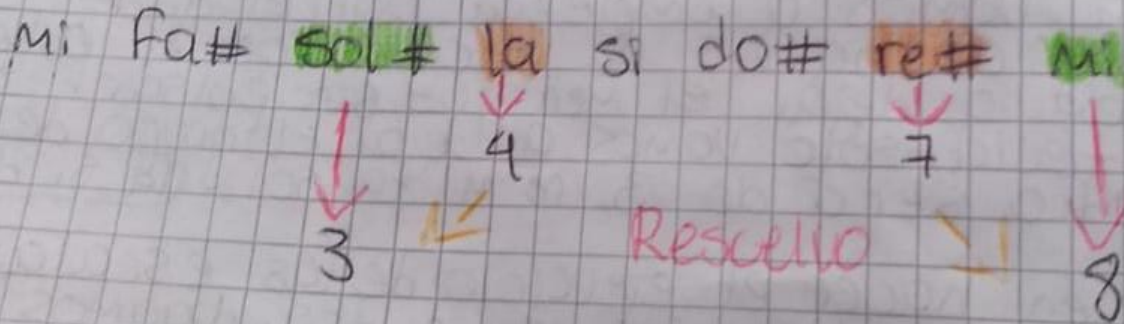 Mi fa# sol# la si do# re# Mi
4 7
3 Rescello 8